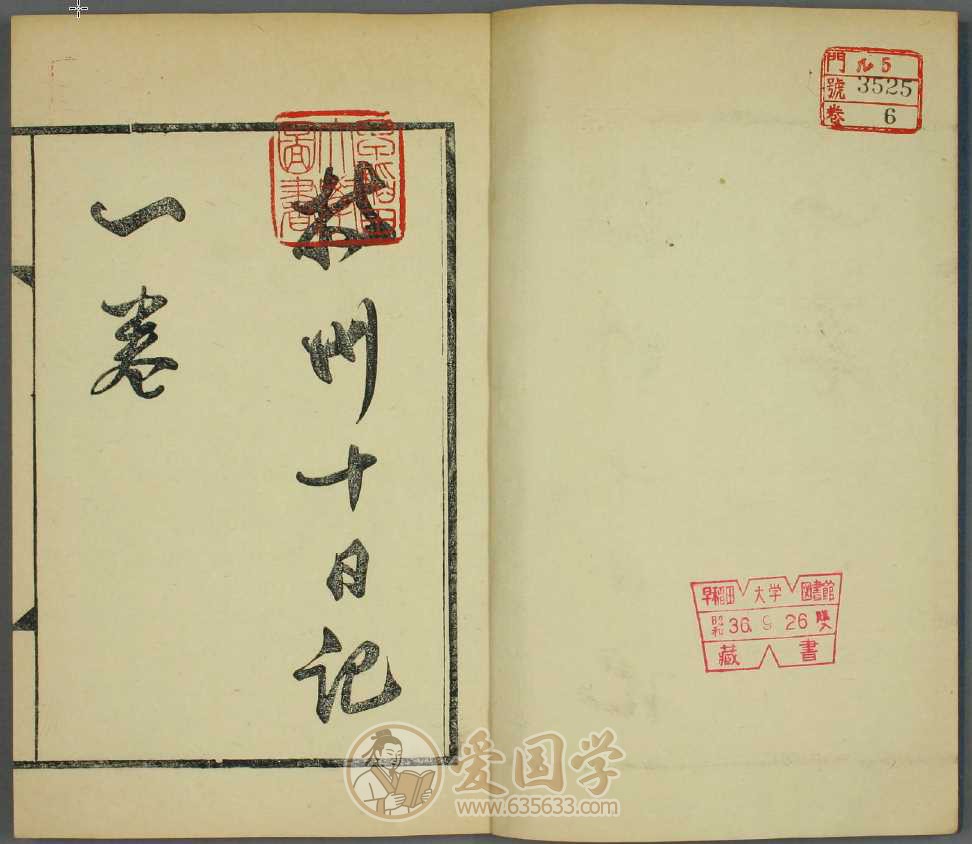 門 ル 5
號 3525
卷 6
早稲田 大学 図書館
昭和 36. 9 26
藏 書
早稻田
大學
圖書
州十日記
一卷
爱国学
www.635633.com